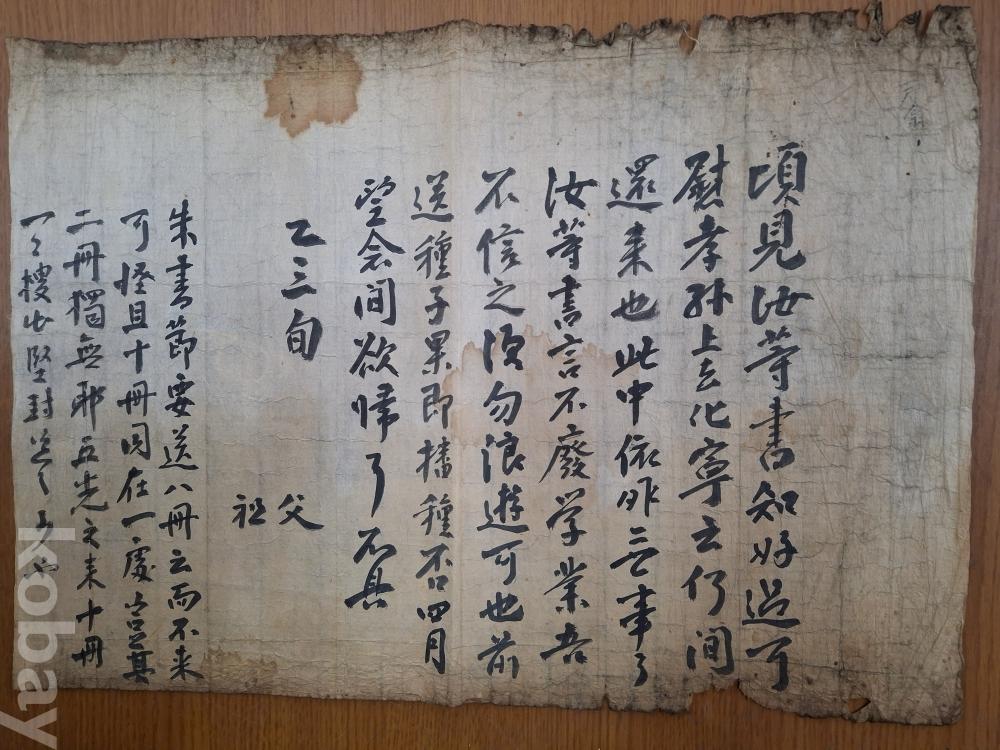 頃見汝等書知好過可
慰孝孫上去化寧云何間
還來也此中依昨無事了
汝等書言不廢学業吾
不信之須勿浪遊可也前
送種子果即播種否四月
望念間欲帰了不具
乙三旬
祖父
朱書節要送八冊云而不来
可怪且十冊同在一處豈其
二冊獨無耶五先文来十冊
一々搜出堅封送之
kobay